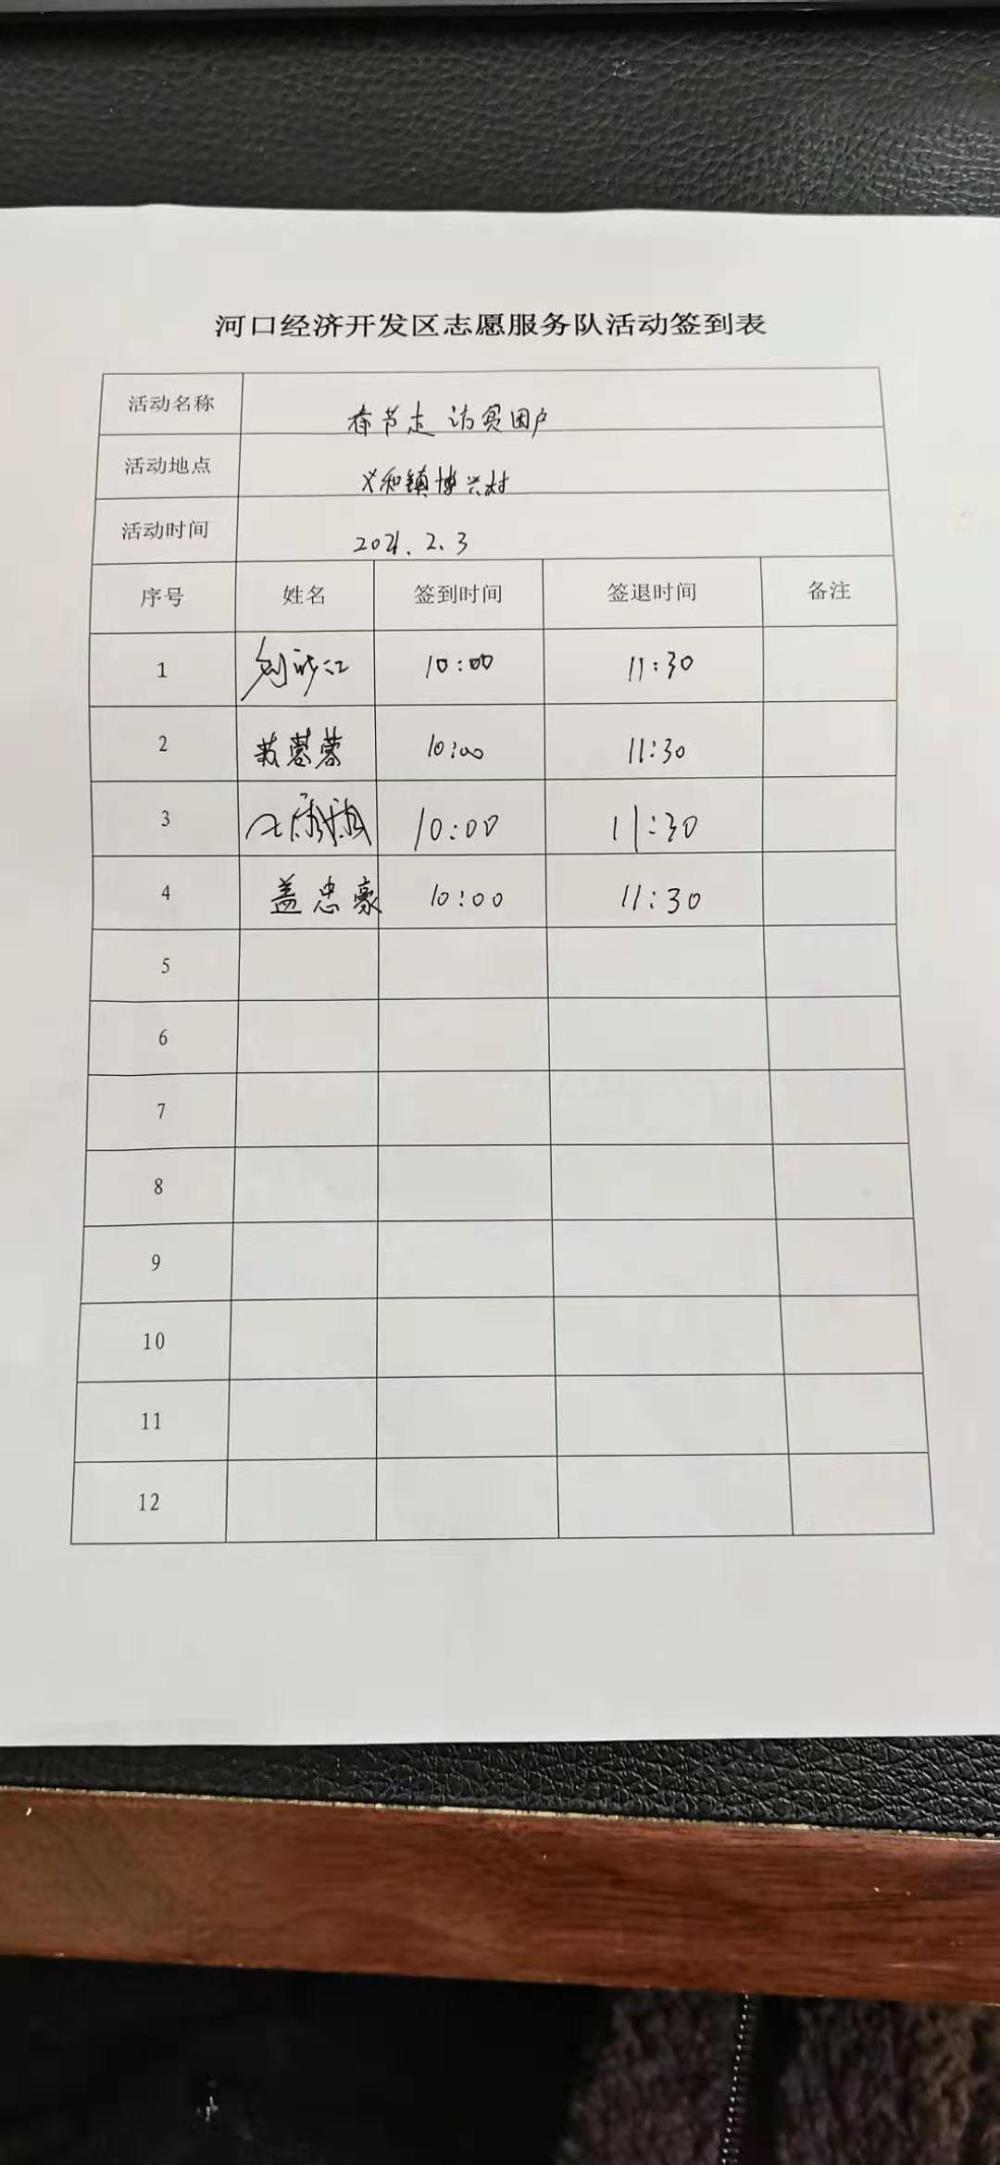 河口经济开发区志愿服务队活动签到表
活动名称 春节走访贫困户
活动地点 义和镇博兴村
活动时间 2021.2.3
序号 姓名 签到时间 签退时间 备注
1 10:00 11:30
2 蓉蓉 10:00 11:30
3 10:00 11:30
4 盖忠豪 10:00 11:30
5
6
7
8
9
10
11
12